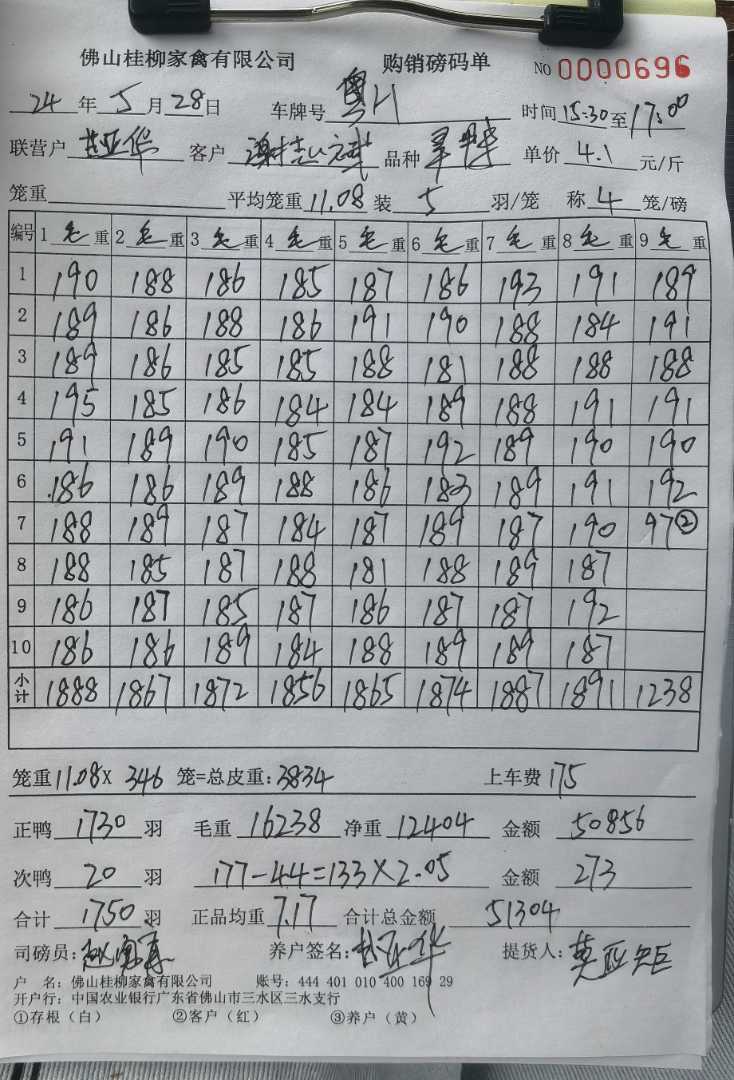 佛山桂柳家禽有限公司 购销磅码单 NO 0000696
24年5月28日 车牌号 粤 时间15:30至17:00
联营户 亚华 客户 品种 单价 4.1 元/斤
笼重 平均笼重11.08装 5 羽/笼 称 4 笼/磅
编号 1 毛 重 2 毛 重 3 毛 重 4 毛 重 5 毛 重 6 毛 重 7 毛 重 8 毛 重 9 毛 重
1 190 188 186 185 187 186 193 191 189
2 189 186 188 186 191 190 188 184 191
3 189 186 185 185 188 181 188 188 188
4 195 185 186 184 184 189 188 191 191
5 191 189 190 185 187 192 189 190 190
6 186 186 189 188 186 183 189 191 192
7 188 189 187 184 187 189 187 190 97②
8 188 185 187 188 181 188 189 187
9 186 187 185 187 186 187 187 192
10 186 186 189 184 188 189 189 187
小计 1888 1867 1872 1856 1865 1874 1887 1891 1238
笼重11.08X 346 笼=总皮重:3834 上车费 175
正鸭 1730 羽 毛重 16238 净重 12404 金额 50856
次鸭 20 羽 177-44=133×2.05 金额 273
合计 1750 羽 正品均重 7.17 合计总金额 51304
司磅员: 养户签名: 亚华 提货人:
户 名: 佛山桂柳家禽有限公司 账号: 444 401 010 400 169 29
开户行: 中国农业银行广东省佛山市三水区三水支行
①存根（白） ②客户（红） ③养户（黄）